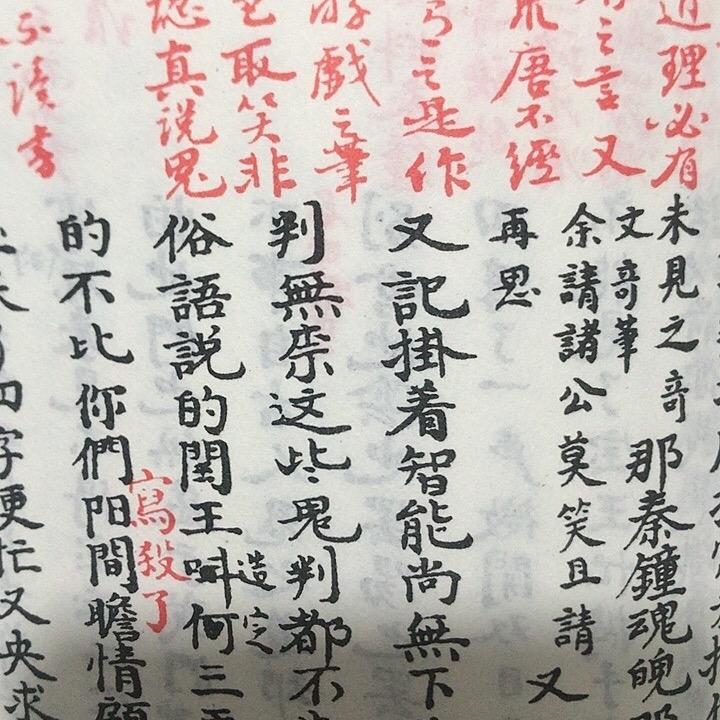 理必有
之言又
唐不經
之是作
戲之筆
取笑非
真說鬼
不讀書
未見之奇
文奇筆
那秦鐘魂魄
余請諸公莫笑且請
再思
又
又記掛着智能尚無下
判無柰这些鬼判都不
造定
俗語說的閻王叫何三
寫殺了
的不比你們阳間瞻情顧
四字便忙又央求